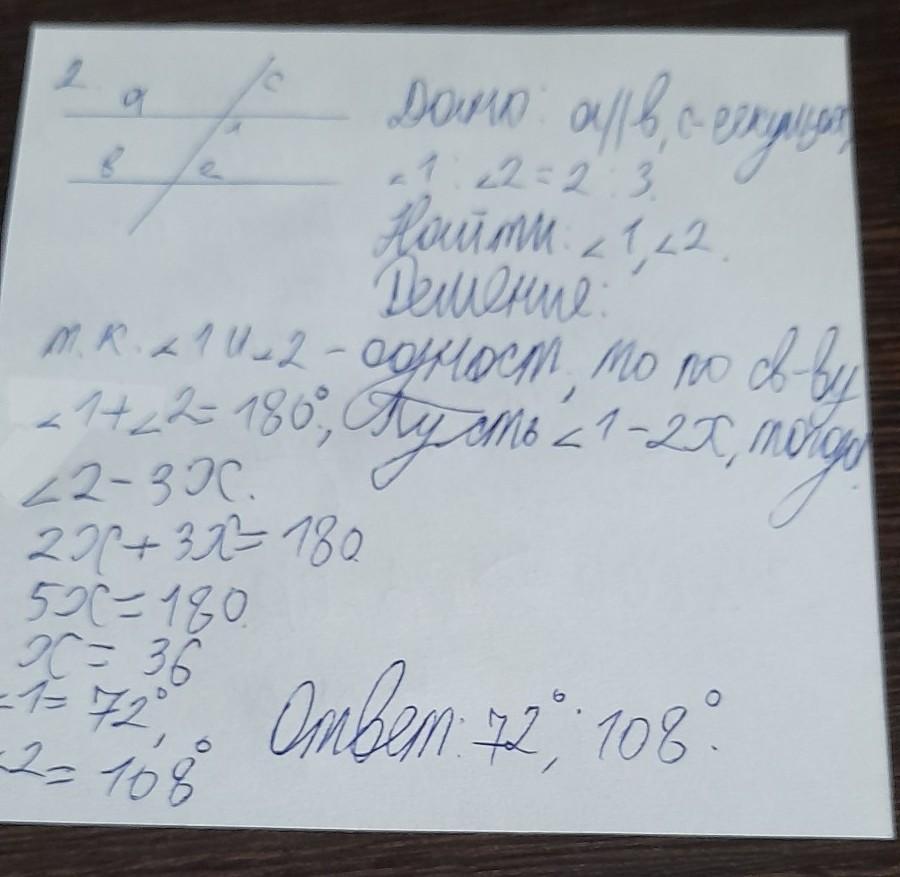 2.
a
c
1
в
2
Дано: a//в, c-секущая,
∠1 : ∠2 = 2 : 3.
Найти: ∠1, ∠2.
Решение:
т.к. ∠1 и ∠2 - одност, то по св-ву
∠1+∠2= 180°, Пусть ∠1-2x, тогда
∠2-3x.
2x+3x= 180
5x=180
x= 36
∠1= 72°,
∠2= 108°
Ответ: 72°; 108°.